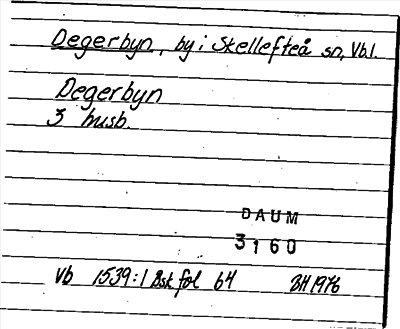 Degerbyn, by i Skellefteå sn, Vbl.
Degerbyn
3 husb.
DAUM
3160
Vb 1539:1 Bsk fol 64 BH 1976